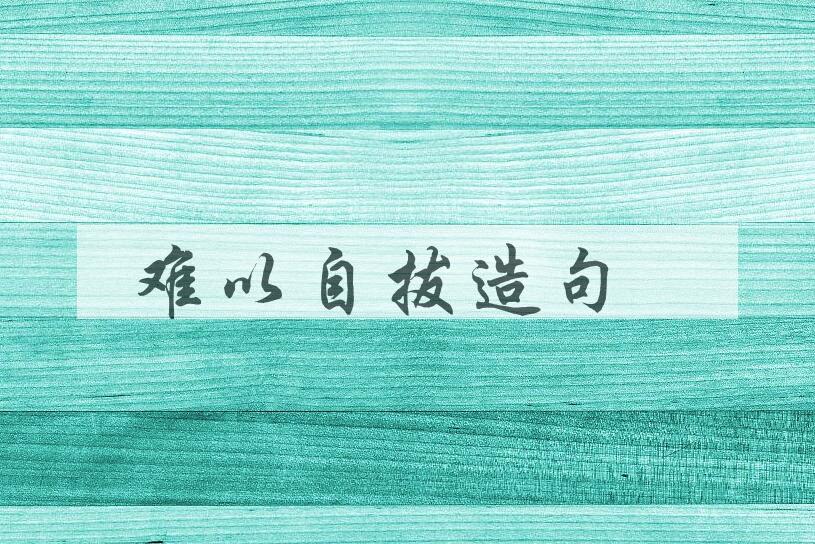 难以自拔造句